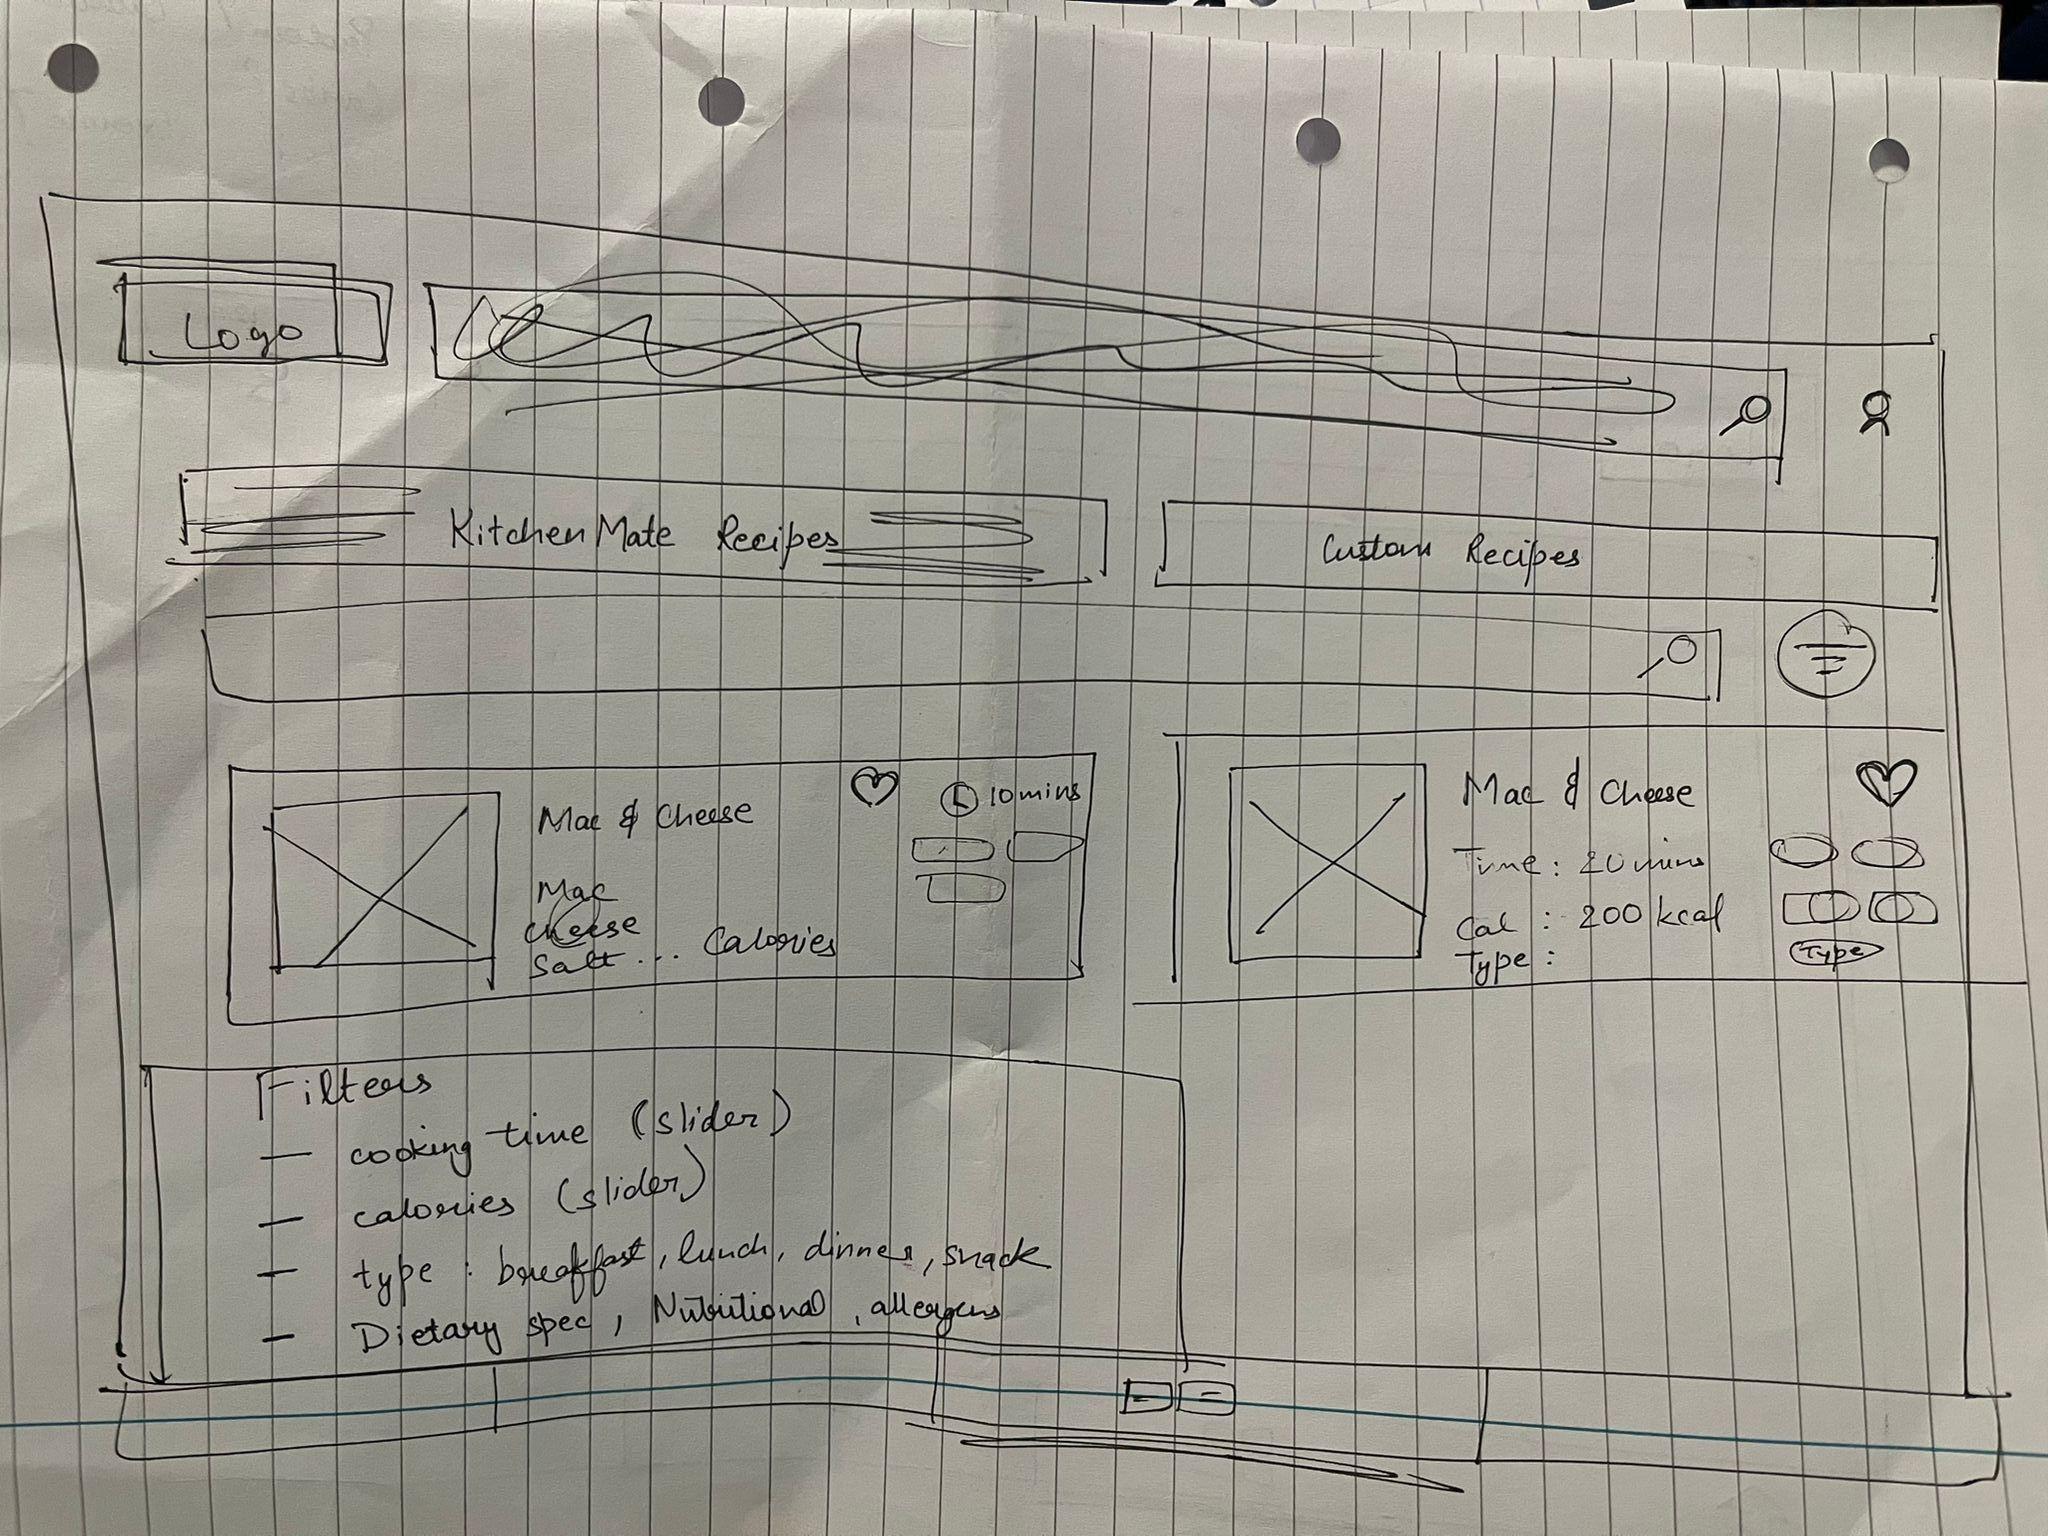 Logo
KitchenMate Recipes
Custom Recipes
Mac & Cheese
10 mins
Mac
Cheese
Salt ... Calories
Mac & Cheese
Time : 20 mins
Cal : 200 kcal
Type :
Type
Filters
— cooking time (slider)
— calories (slider)
— type : breakfast, lunch, dinner, snack
— Dietary spec, Nutritional, allergens